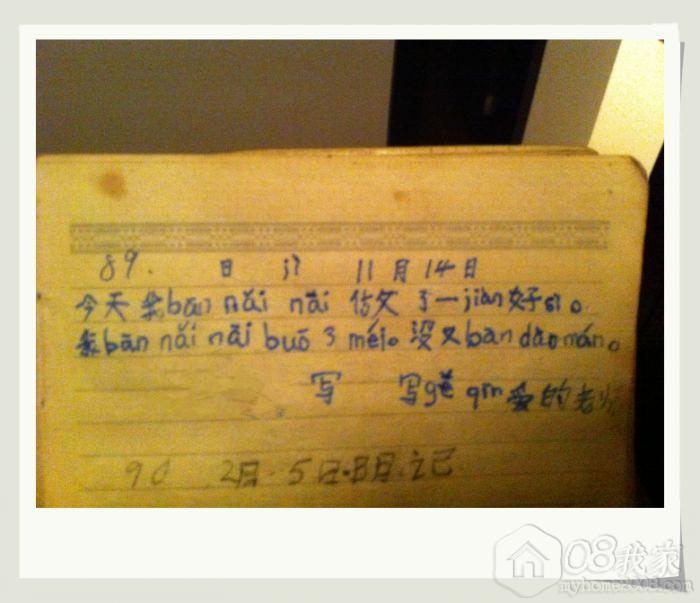 89. 日 jì 11月14日
今天我bān nǎi nāi 做 了一jiàn好sì。
我bān nǎi nāi buō 3 méi。没又bān dāo mán。
写 写gě qīn爱的老师
90 2月·5日·日记
08我家
myhome2008.com